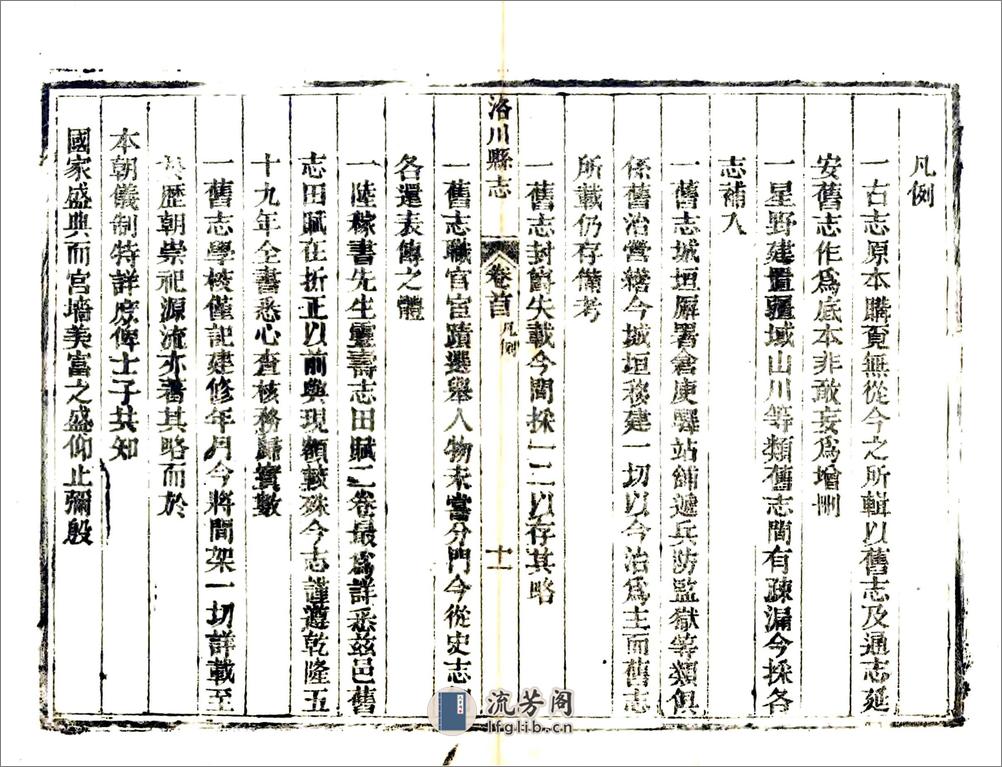 凡例
一古志原本購覓無從今之所輯以舊志及通志延
安舊志作爲底本非敢妄爲增刪
一星野建置疆域山川等類舊志間有疎漏今採各
志補入
一舊志城垣廨署倉庾驛站舖遞兵防監獄等類俱
係舊治營繕今城垣移建一切以今治爲主而舊志
所載仍存備考
一舊志封爵失載今間採一二以存其略
洛川縣志
卷首
凡例
十一
一舊志職官宦蹟選舉人物未嘗分門今從史志
各還表傳之體
一陸稼書先生靈壽志田賦二卷最爲詳悉茲邑舊
志田賦在折正以前與現額較殊今志謹遵乾隆五
十九年全書悉心查核務歸實數
一舊志學校僅記建修年月今將間架一切詳載至
歷朝崇祀源流亦著其略而於
本朝儀制特詳庶俾士子共知
國家盛典而宮墻美富之盛仰止彌殷
流芳阁
lfglib.cn